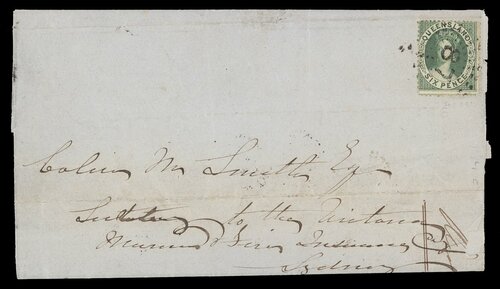 QUEENSLAND
SIX PENCE
Colin M Smith Esq
to the Victoria
Marine & Fire Insurance Co
Sydney